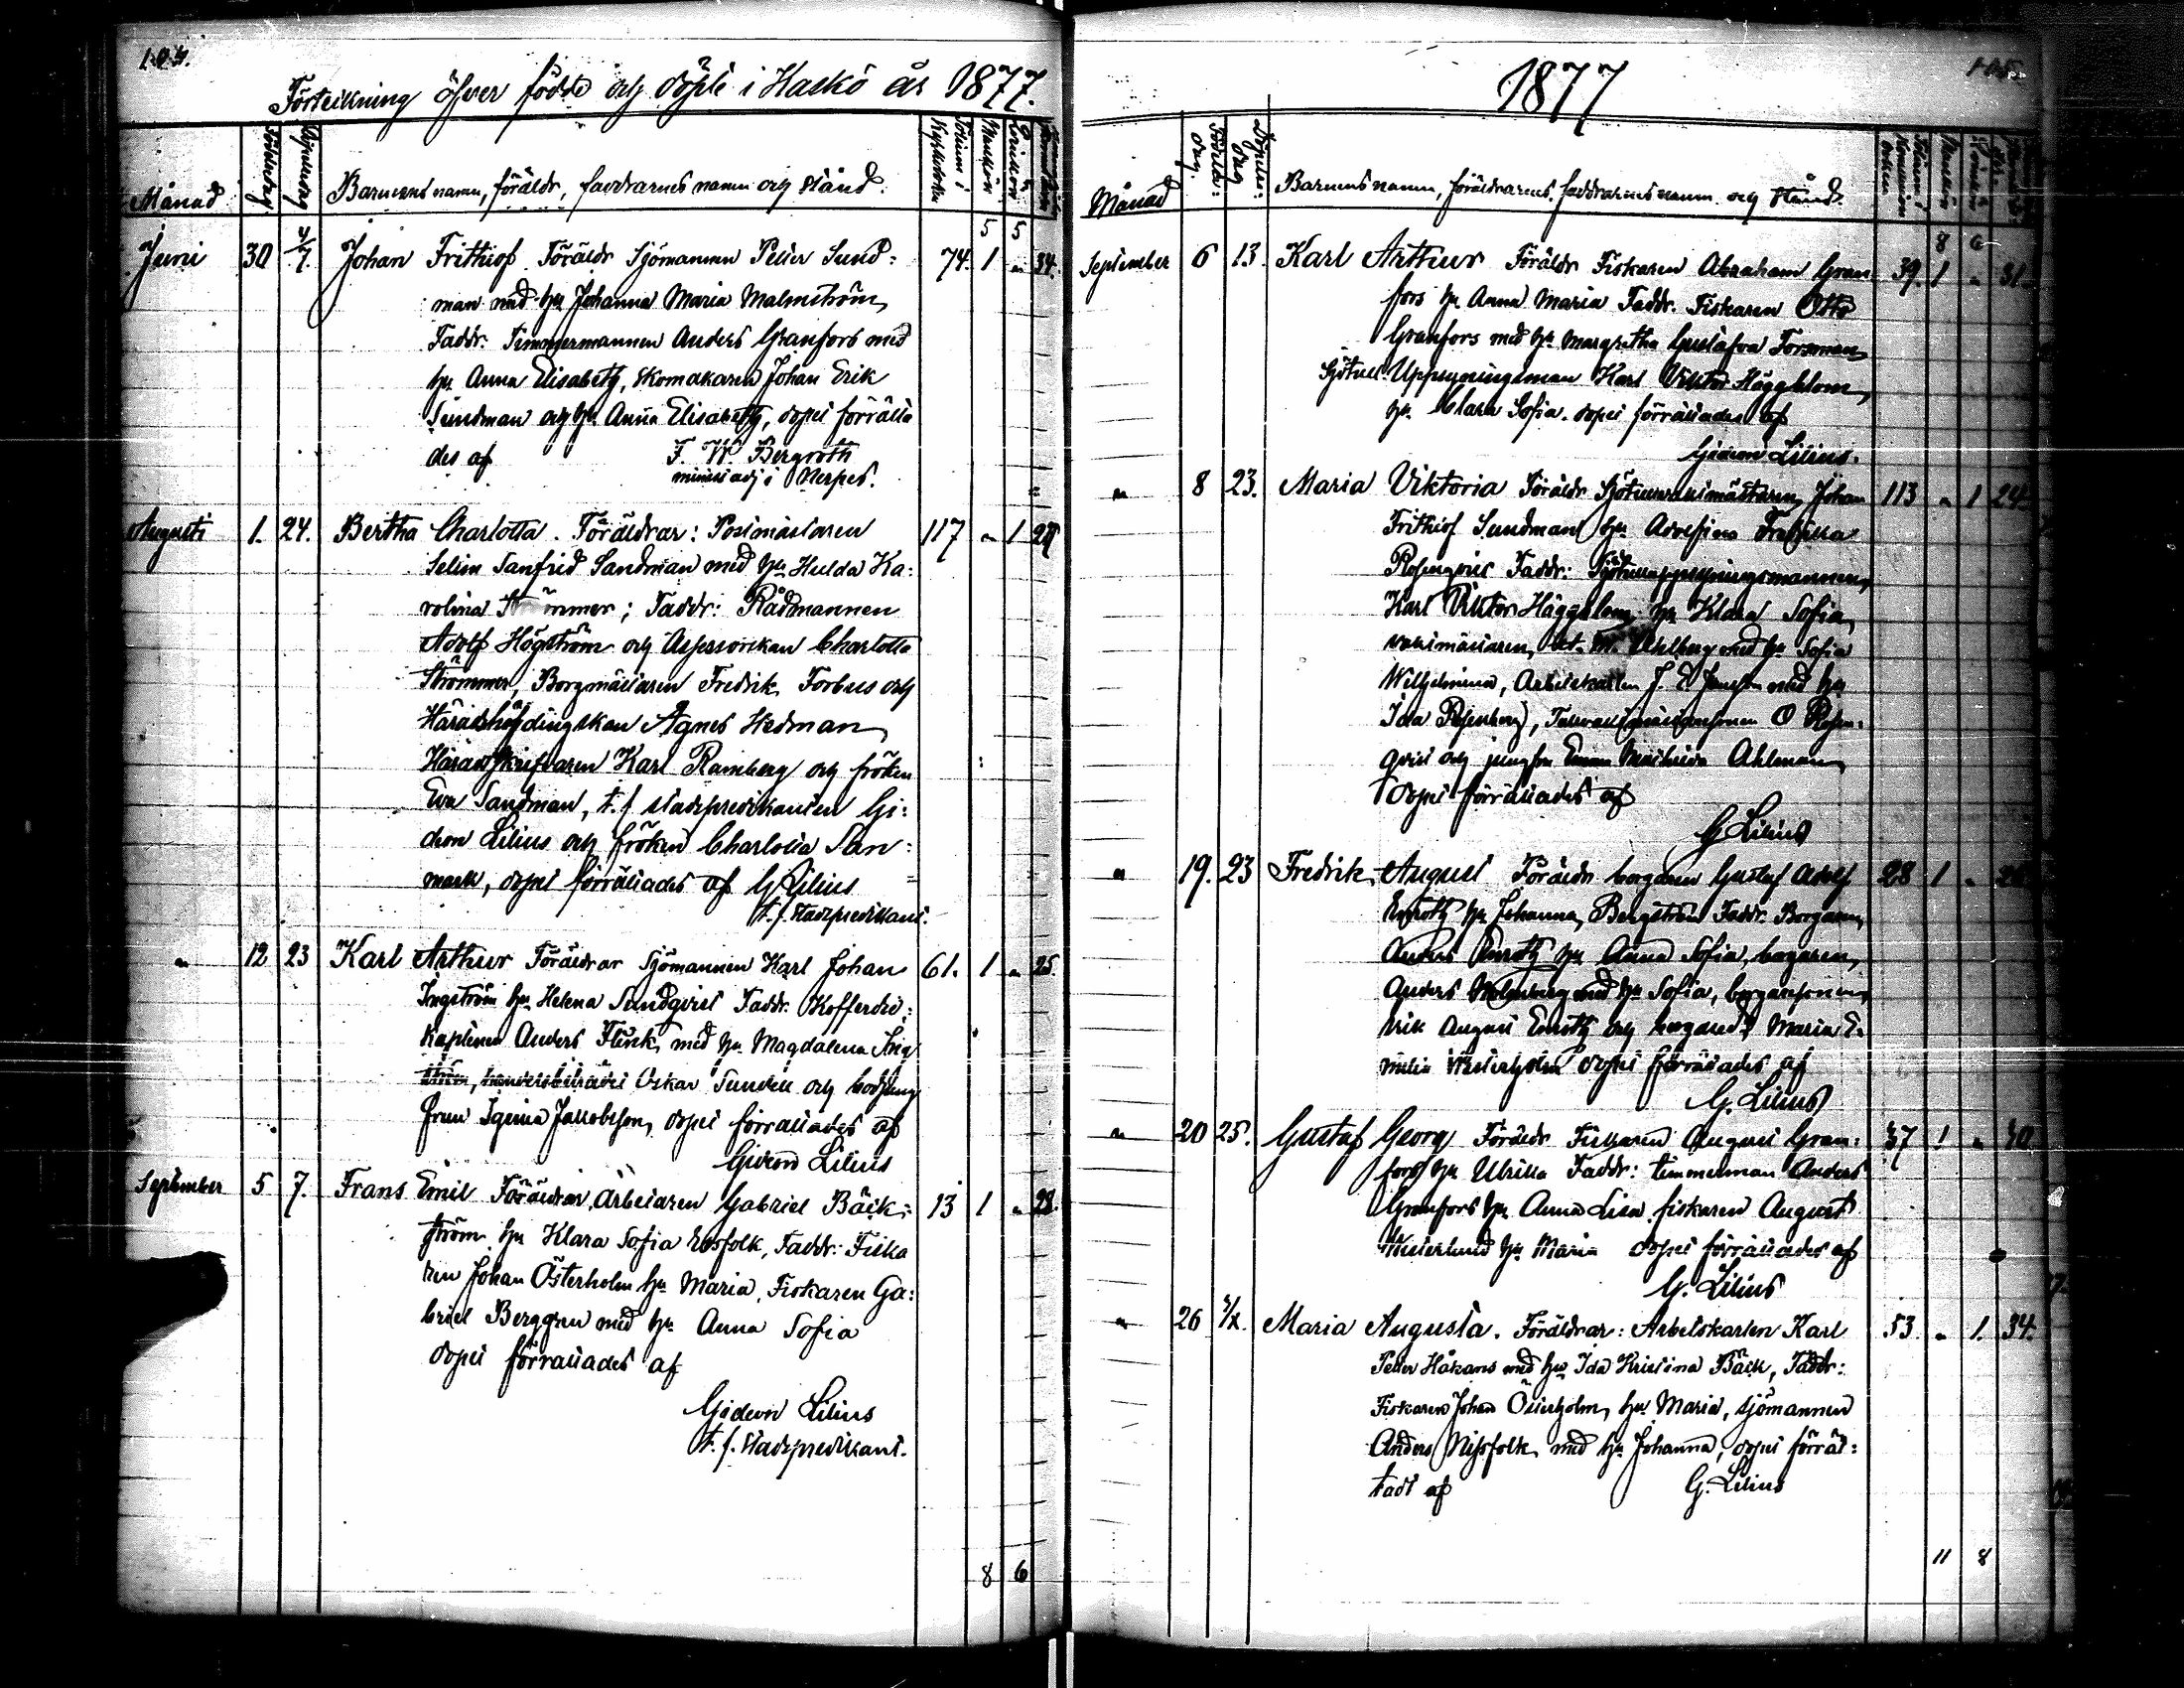 104.
Förteckning öfver födde och döpte i Kaskö år 1877.
Månad
Födelsedag
Döpelsedag
Barnens namn, föräldr, faddrarnes namn och stånd.
5 5
Juni 30 4/7. Johan Frithiof Föräldr Sjömannen Petter Sund= 74. 1 " 34.
man med hu Johanna Maria Malmström,
Faddr: Timmermannen Anders Granfors med
hu Anna Elisabeth, skomakaren Johan Erik
Sundman och hu Anna Elisabeth, dopet förrätta
des af F. W. Bergroth
minist adj i Nerpes.
Augusti 1. 24. Bertha Charlotta. Föräldrar: Postmästaren 117 " 1 24
Selim Sanfrid Sandman med hu Hulda Ka:
rolina Strömmer; Faddr: Rådmannen
Adolf Högström och Assessorskan Charlotta
Strömmer, Borgmästaren Fredrik Forbus och
Häradshöfdingskan Agnes Hedman,
Häradskrifvaren Karl Ramberg och fröken
Eva Sandman, t. f. stadspredikanten Gi:
deon Lilius och fröken Charlotta San:
mark, dopet förrättades af G Lilius
t. f. stadspredikant.
" 12 23 Karl Arthur Föräldrar Sjömannen Karl Johan 61. 1 " 25
Ingström hu Helena Sundqvist Faddr. Kofferdie:
kaptenen Anders Flinck med hu Magdalena Ing
ström, handelsbiträdet Oskar Sundell och bodjung
frun Jakobsson, dopet förrättades af
Gideon Lilius
September 5 7. Frans Emil Föräldrar Arbetaren Gabriel Bäck: 13 1 " 28.
ström hu Klara Sofia Rosfolk, Faddr: Fiska
ren Johan Österholm hu Maria, Fiskaren Ga:
briel Berggren med hu Anna Sofia
dopet förrättades af
Gideon Lilius
t. f. stadspredikant.
8 6
1877
105.
Månad
Födelse: dag.
Döpelse: dag
Barnens namn, föräldrarnes, faddrarnes namn och stånd.
8 6
September 6 13. Karl Arthur Föräldr Fiskaren Abraham Gran= 39. 1 " 31.
fors hu Anna Maria Faddr. Fiskaren Otto
Granfors med hu Margretha Gustafva Forsman,
Sjötull. Uppsyningsman Karl Viktor Häggblom,
hu Clara Sofia. dopet förrättades af
Gideon Lilius.
" 8 23. Maria Viktoria Föräldr Sjötullvaktmästaren Johan 113 " 1 24
Frithiof Sundman hu Adolfina Fredrika
Rosenqvist Faddr: Sjötulluppsyningsmannen,
Karl Viktor Häggblom hu Klara Sofia,
vaktmästaren, Ahlberg med hu Sofia
Wilhelmina, Arbetskarlen J. E Jansson med hu
Ida Rosenberg, Tullvaktmästaresonen O Rosen:
qvist och jungfru Emma Mathilda Ahlman,
dopet förrättades af
G Lilius
" 19. 23 Fredrik August Föräldr borgaren Gustaf Adolf 28 1 "
Enroth hu Johanna Bergström Faddr. Borgaren,
Anders Enroth hu Anna Sofia, borgaren,
Anders Holmberg med hu Sofia, borgaresonen,
Erik August Enroth och borgared. Maria E=
milia Westerholm dopet förrättades af
G. Lilius
" 20 25. Gustaf Georg Föräldr Fiskaren August Gran: 37 1 " 40
fors hu Ulrika Faddr: timmerman Anders
Granfors hu Anna Lisa, fiskaren August
Westerlund hu Maria dopet förrättades af
G. Lilius
" 26 Maria Augusta. Föräldrar: Arbetskarlen Karl 53. " 1. 34.
Petter Håkans med hu Ida Kristina Bäck, Faddr:
Fiskaren Johan Österholm, hu Maria, sjömannen
Anders Nissfolk, med hu Johanna, dopet förrät:
tadt af G. Lilius
11 8